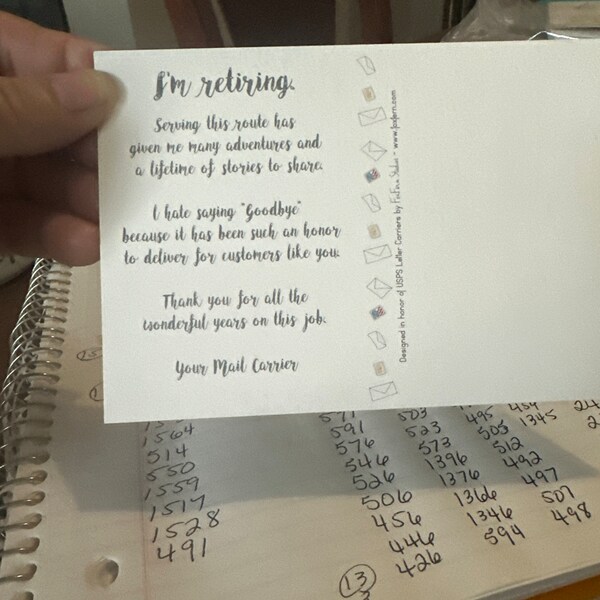 I'm retiring.
Serving this route has
given me many adventures and
a lifetime of stories to share.
I hate saying "Goodbye"
because it has been such an honor
to deliver for customers like you.
Thank you for all the
wonderful years on this job.
Your Mail Carrier
Designed in honor of USPS Letter Carriers by FoxFern Studio - www.foxfern.com
1564
514
550
1559
1517
1528
491
571
591
576
546
526
506
456
446
426
503
523
573
1396
1376
1366
1346
594
495
505
512
492
497
507
498
1345
13